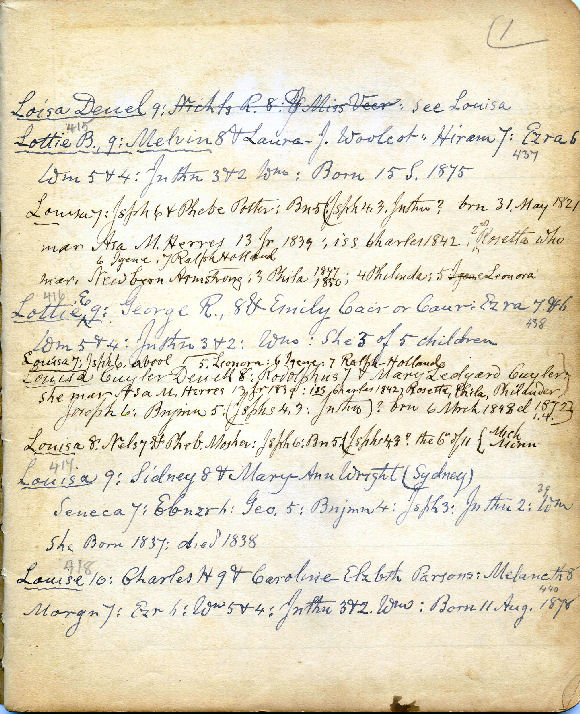 1
Loisa Deuel 9: Nichls R. 8: & Miss Veer: see Louisa
415
Lottie B., 9: Melvin 8 & Laura J. Woolcot: Hiram 7: Ezra 6
437
Wm 5 & 4: Jnthn 3 & 2 Wm: Born 15 S. 1875
Louisa 7: Jsph 6 & Phebe Potter: Bn 5 (Jsph 4, 3. Jnthn? brn 31 May 1821
mar Asa M. Herres 13 Jr 1839: iss Charles 1842, 2nd Rosetta who
6 Igene: 7 Ralph Holland
mar. Newbern Armstrong; 3 Phila 1847 1850; 4 Philinda; 5 Igene Leonora
416
Lottie E 9: George R., 8 & Emily Cair or Caur: Ezra 7 & 6
438
Wm 5 & 4: Jnthn 3 & 2: Wm: She 3 of 5 children
Louisa 7: Jsph 6. abool 5. Leonora: 6 Igene: 7 Ralph-Holland
Louisa Cuyler Deuell 8: Rodolphus 7 & Mary Ledyard Cuyler
she mar Asa M. Herres 13 Jr 1839: iss Charles 1842, Rosetta, Phila, Philinda,
Joseph 6: Bnjmn 5: (Jsphs 4, 3: Jnthn)? born 6 Mrch 1848 d
Louisa 8: Nels 7 & Pheb. Mosher: Jsph 6: Bn 5 (Jsph 4 3? the 6 of 11 { Mich Minn
417
Louisa 9: Sidney 8 & Mary Ann Wright (Sydney)
39
Seneca 7: Ebnzr 6: Geo. 5: Bnjmn 4: Jsph 3: Jnthn 2: Wm
She Born 1837: died 1838
418
Louise 10: Charles H 9 & Caroline Elzbth Parsons: Melancth 8
440
Morgn 7: Ezr 6: Wm 5 & 4: Jnthn 3 & 2. Wm: Born 11 Aug. 1878